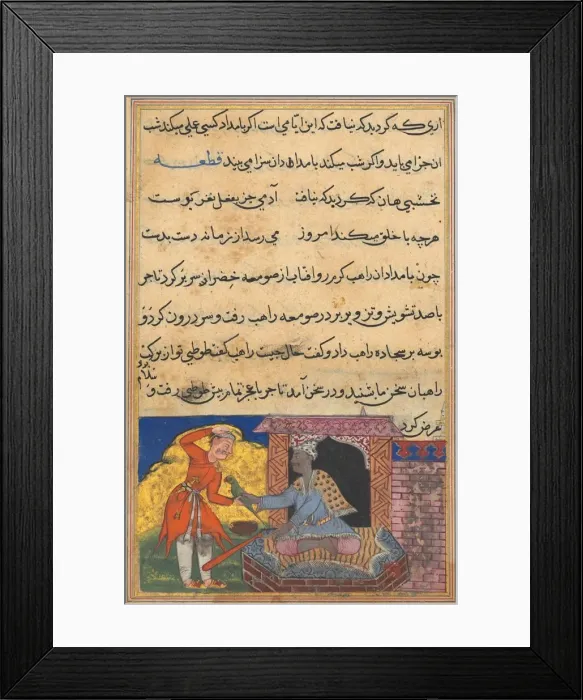 اری که کردید که نیافت که این ایامی است اکر بامداد کسی عملی میکند شب
ان جزا می یابد و اکر شب میکند بامدادان سزا می بیند قطعه
نخشبی هان که کردید که نیافت آدمی جز بفعل نغز نکوست
هرچه با خلق میکند امروز می رسد از زمانه دست بدست
چون بامدادان راهب کریز رو افتاب از صومعه خضرا سر بر کرد تاجر
باصد تشویش و تزویر بر در صومعه راهب رفت و سر درون کرد و
بوسه بر سجاده راهب داد و کفت حال چیست راهب کفت طوطی تو از برکت
راهبان سخن ما شنید و در سخن آمد تاجر با عجز تمام پیش طوطی رفت و
سلام
عرض کرد